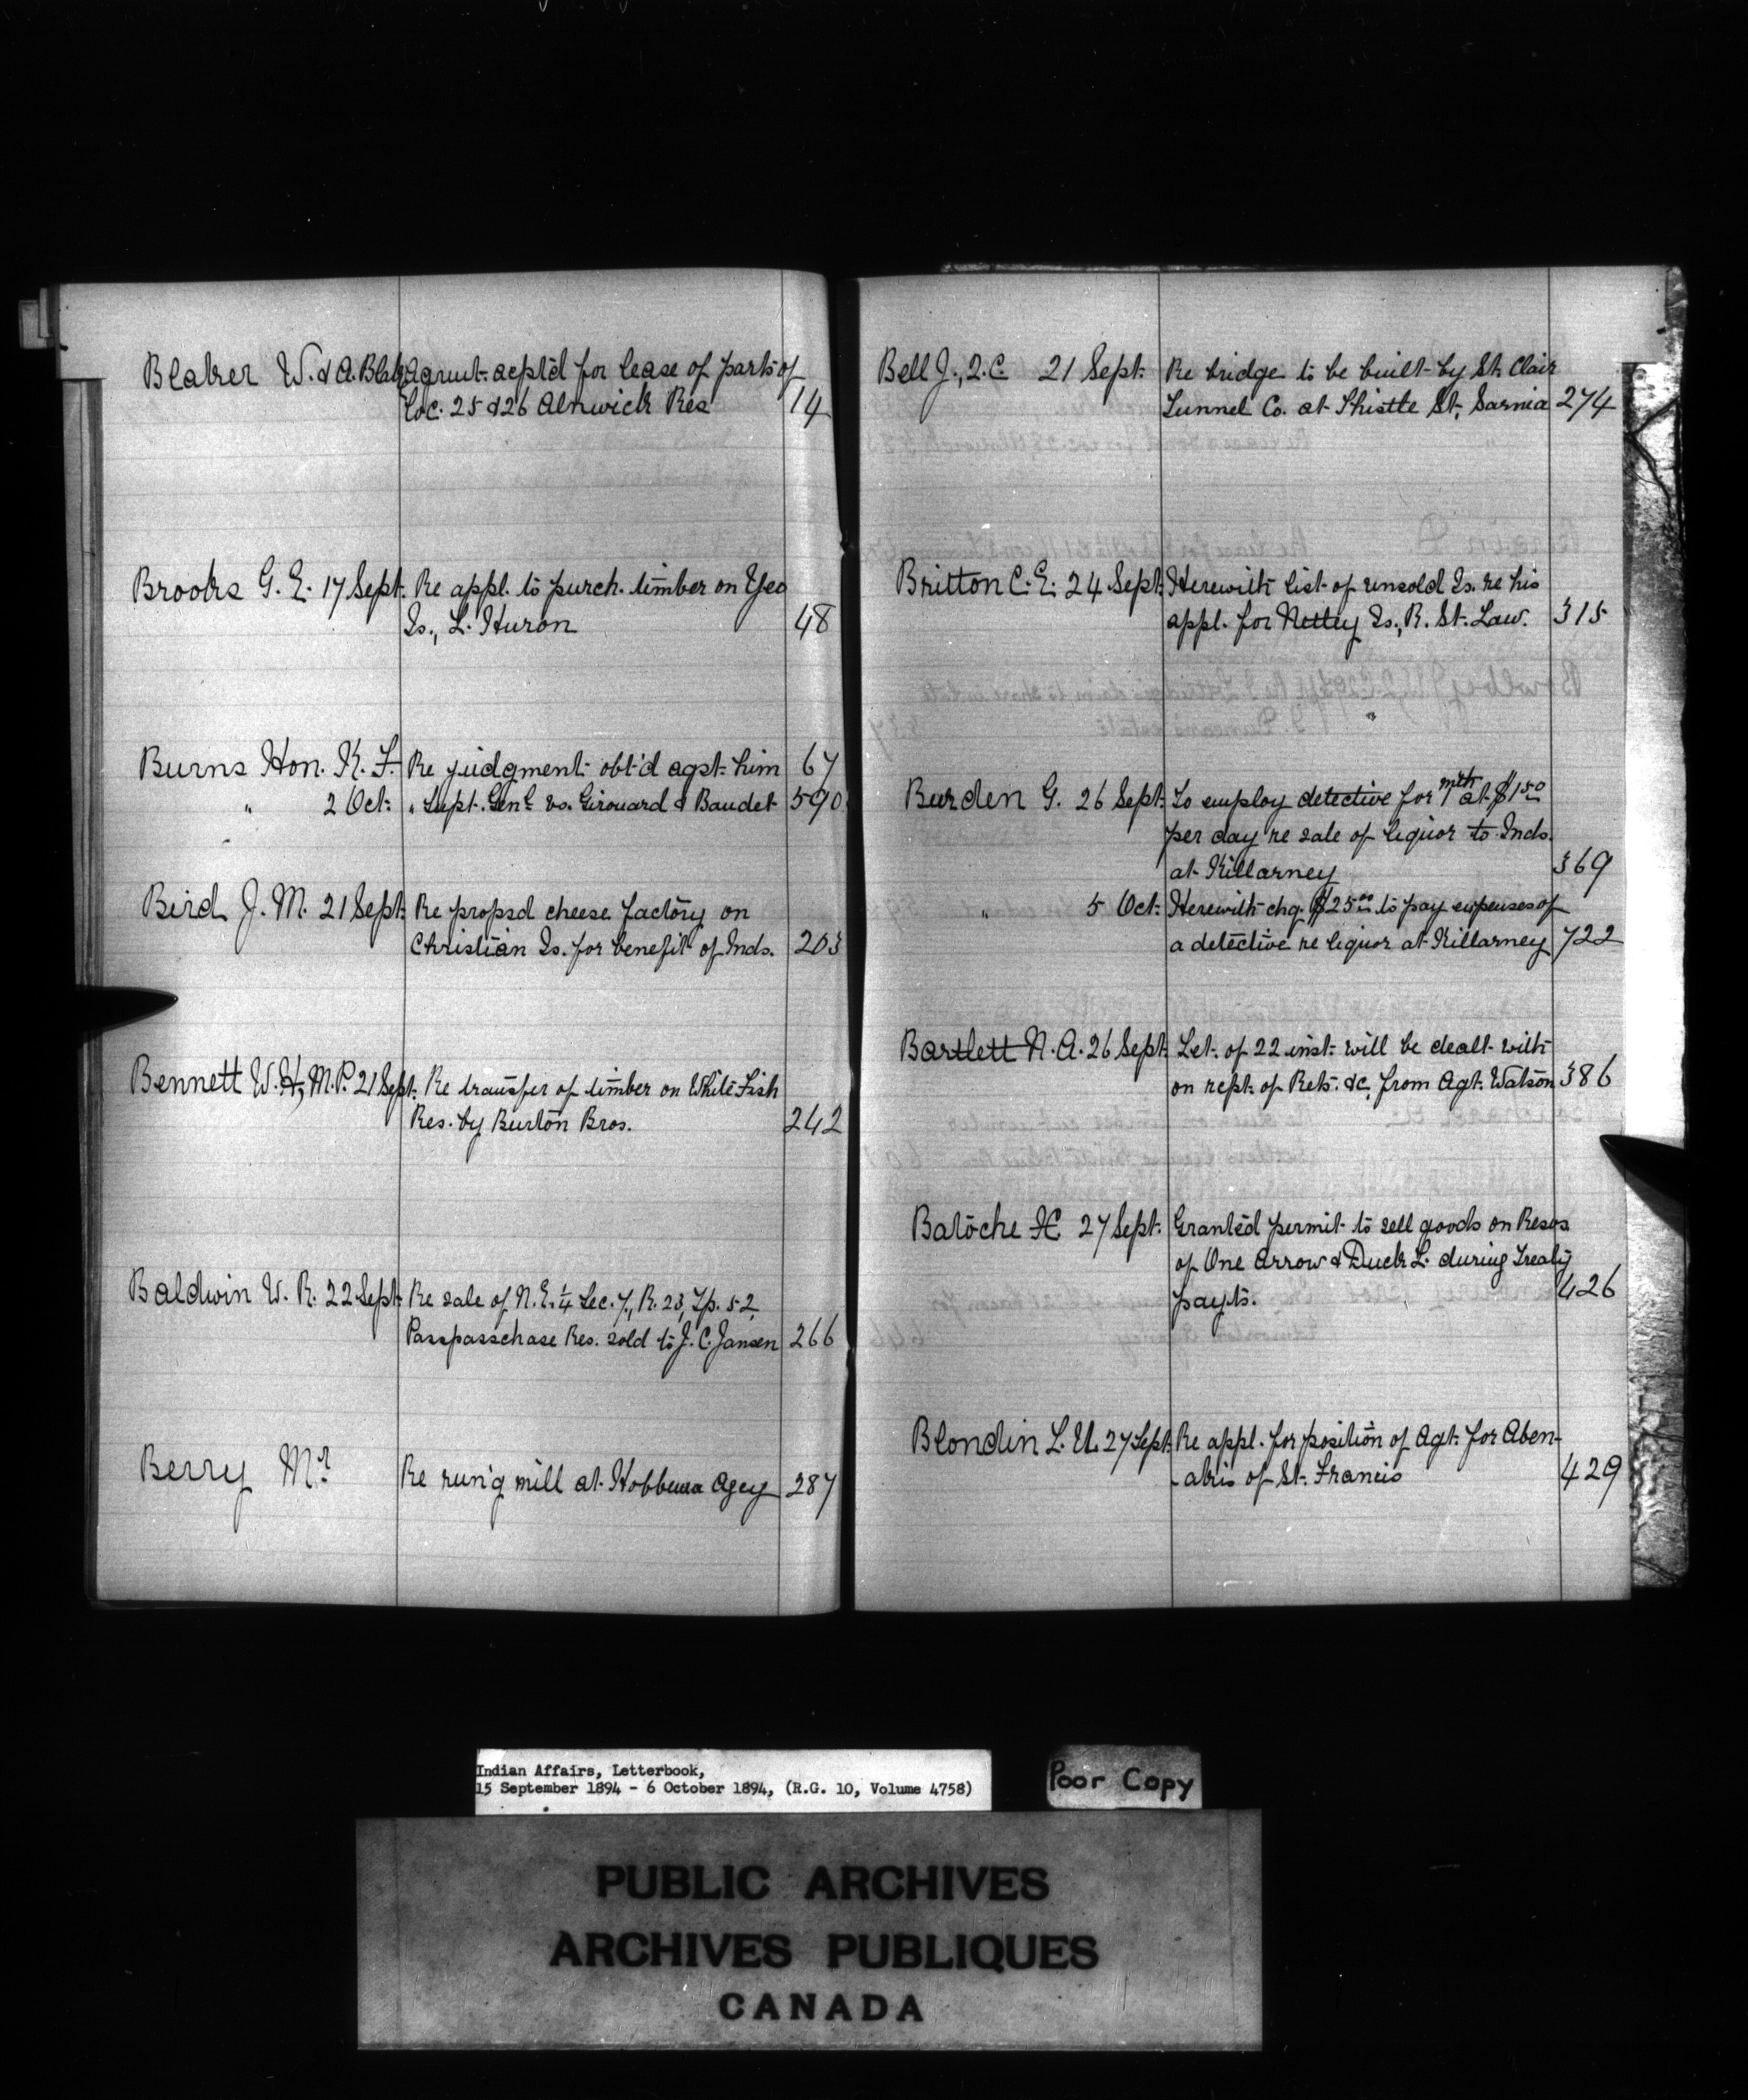 Blaker W. & A. Blak Agrmt. acptd for lease of parts of
loc. 25 & 26 Alnwick Res 14
Brooks G. E. 17 Sept. Re appl. to purch. timber on Yeo
Is., L. Huron 48
Burns Hon. K. F. Re judgment obt'd agst. him 67
" 2 Oct. " Supt. Genl. vs. Girouard & Baudet 590
Bird J. M. 21 Sept. Re propsd cheese factory on
Christian Is. for benefit of Inds. 203
Bennett W. H., M.P. 21 Sept. Re transfer of timber on White Fish
Res. by Burton Bros. 242
Baldwin W. R. 22 Sept. Re sale of N.E. 1/4 Sec. 7, R. 23, Tp. 52
Passpasschase Res. sold to J. C. Jansen 266
Berry Mr. Re run'g mill at Hobbema Agcy 287
Bell J., Q.C. 21 Sept. Re bridge to be built by St. Clair
Tunnel Co. at Thistle St., Sarnia 274
Britton C. E. 24 Sept. Herewith list of unsold Is. re his
appl. for Netley Is., R. St. Law. 315
Burden G. 26 Sept. To employ detective for 1 mth at $1.50
per day re sale of liquor to Inds.
at Killarney 369
" 5 Oct. Herewith chq. $25.00 to pay expenses of
a detective re liquor at Killarney 722
Bartlett N. A. 26 Sept. Let. of 22 inst. will be dealt with
on rept. of Rets. &c. from Agt. Watson 386
Batoche H. 27 Sept. Granted permit to sell goods on Resvs
of One Arrow & Duck L. during Treaty
payts. 426
Blondin L. U. 27 Sept. Re appl. for position of Agt. for Aben-
-akis of St. Francis 429
Indian Affairs, Letterbook,
15 September 1894 - 6 October 1894, (R.G. 10, Volume 4758)
Poor Copy
PUBLIC ARCHIVES
ARCHIVES PUBLIQUES
CANADA